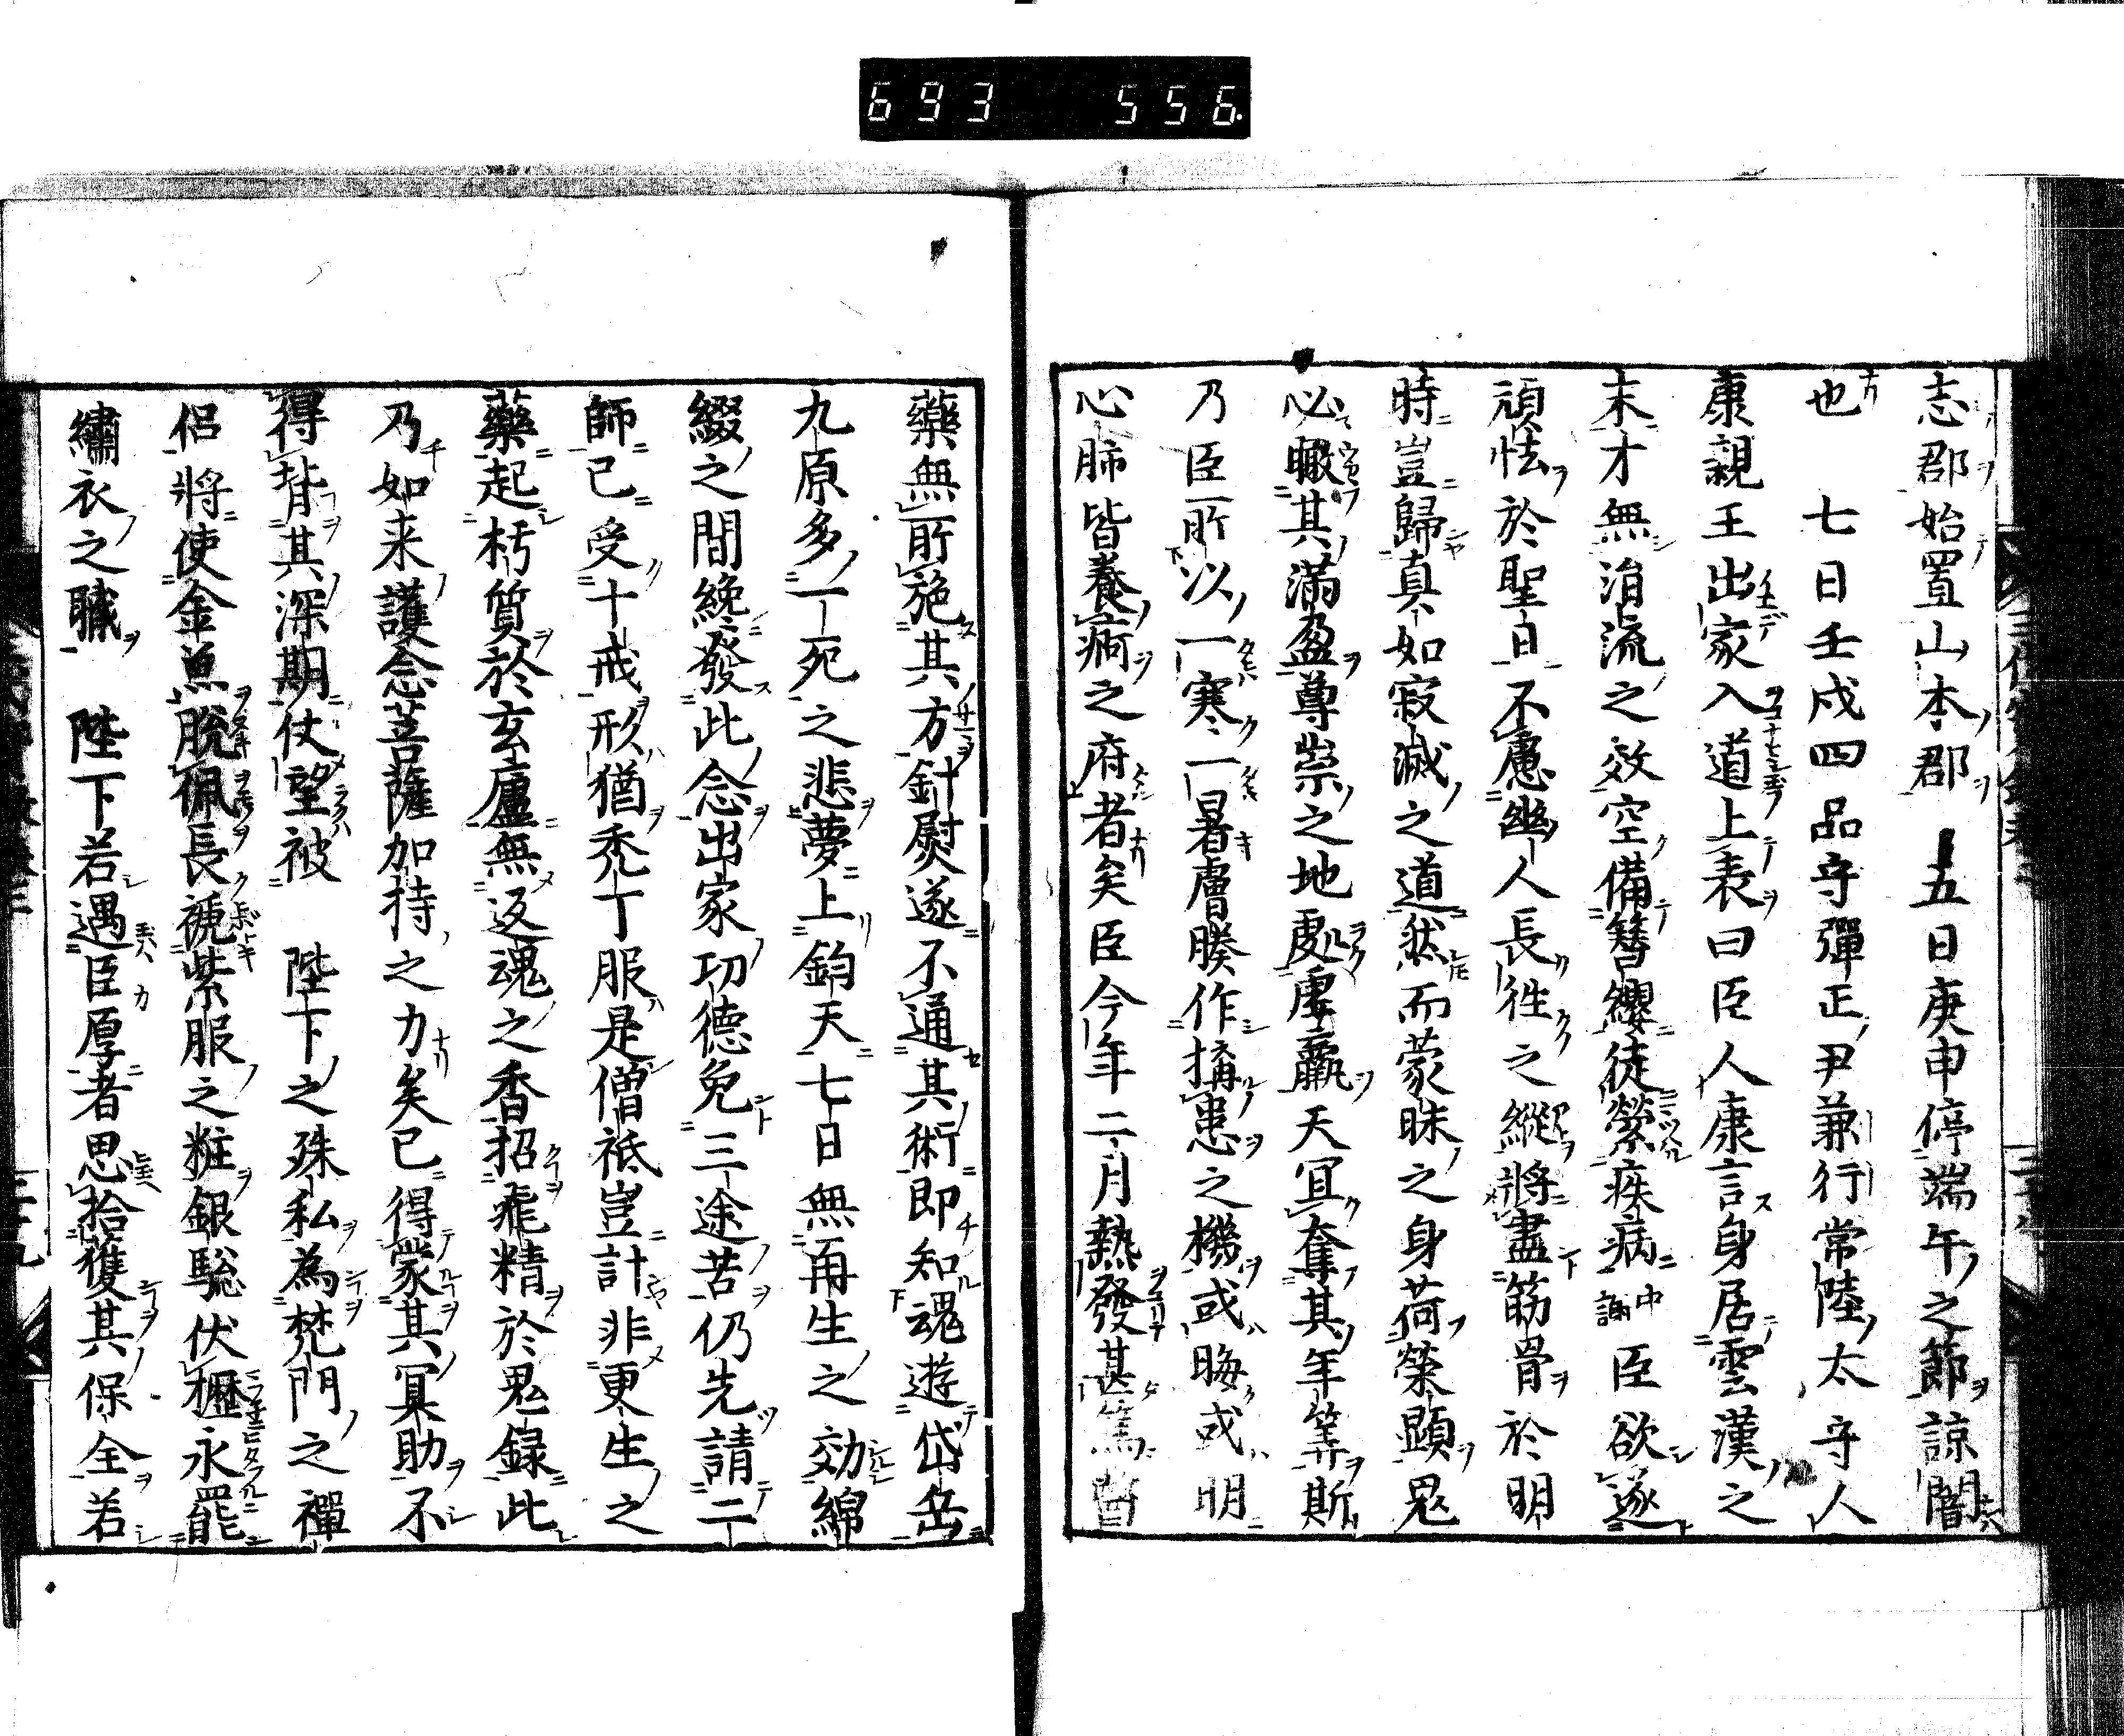 693 556
志郡始置山本郡 五日庚申停端午之節諒闇
也 七日壬戌四品守彈正尹兼行常陸太守人
康親王出家入道上表曰臣人康言身居雲漢之
末才無涓流之效空備簪纓徒縈疾病中謝臣欲遂
頑怯於聖日不慮幽人長往之縱將盡筋骨於明
時豈歸真如寂滅之道然而蒙昧之身荷榮顯鬼
必瞰其滿盈尊崇之地處虚羸天冝奪其年等斯
乃臣所以一寒一暑膚腠作搆患之機或晦或明
心肺皆養痾之府者矣臣今年二月熱發甚篤醫
藥無所施其方針熨遂不通其術即知魂遊岱岳
九原多一死之悲夢上鈞天七日無再生之効綿
綴之間纔發此念出家功德免三途苦仍先請二
師已受十戒形猶禿丁服是僧祇豈計非更生之
藥起朽質於玄廬無返魂之香招飛精於鬼録此
乃如来護念菩薩加持之力矣已得蒙其冥助不
得背其深期仗望被 陛下之殊私為梵門之禪
侶將使金魚脫佩長褫紫服之粧銀騘伏櫪永罷
繡衣之職 陛下若遇臣厚者思拾獲其保全若